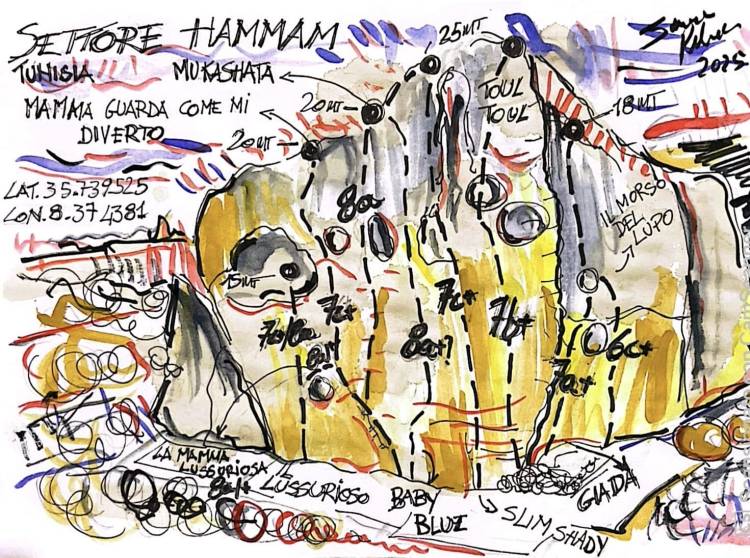 SETTORE HAMMAM
TUNISIA MUKASHATA
MAMMA GUARDA COME MI
DIVERTO
LAT. 35.739525
LON. 8.374381
25MT
2025
20MT
20MT
18MT
15MT
TOUL
TOUL
IL MORSO
DEL
LUPO
8a
7c+
7c+
8a+?
7b+
7a+
6c+
LA MAMMA
LUSSURIOSA
IL
LUSSURIOSO
BABY
BLUE
SLIM SHADY
GIADA